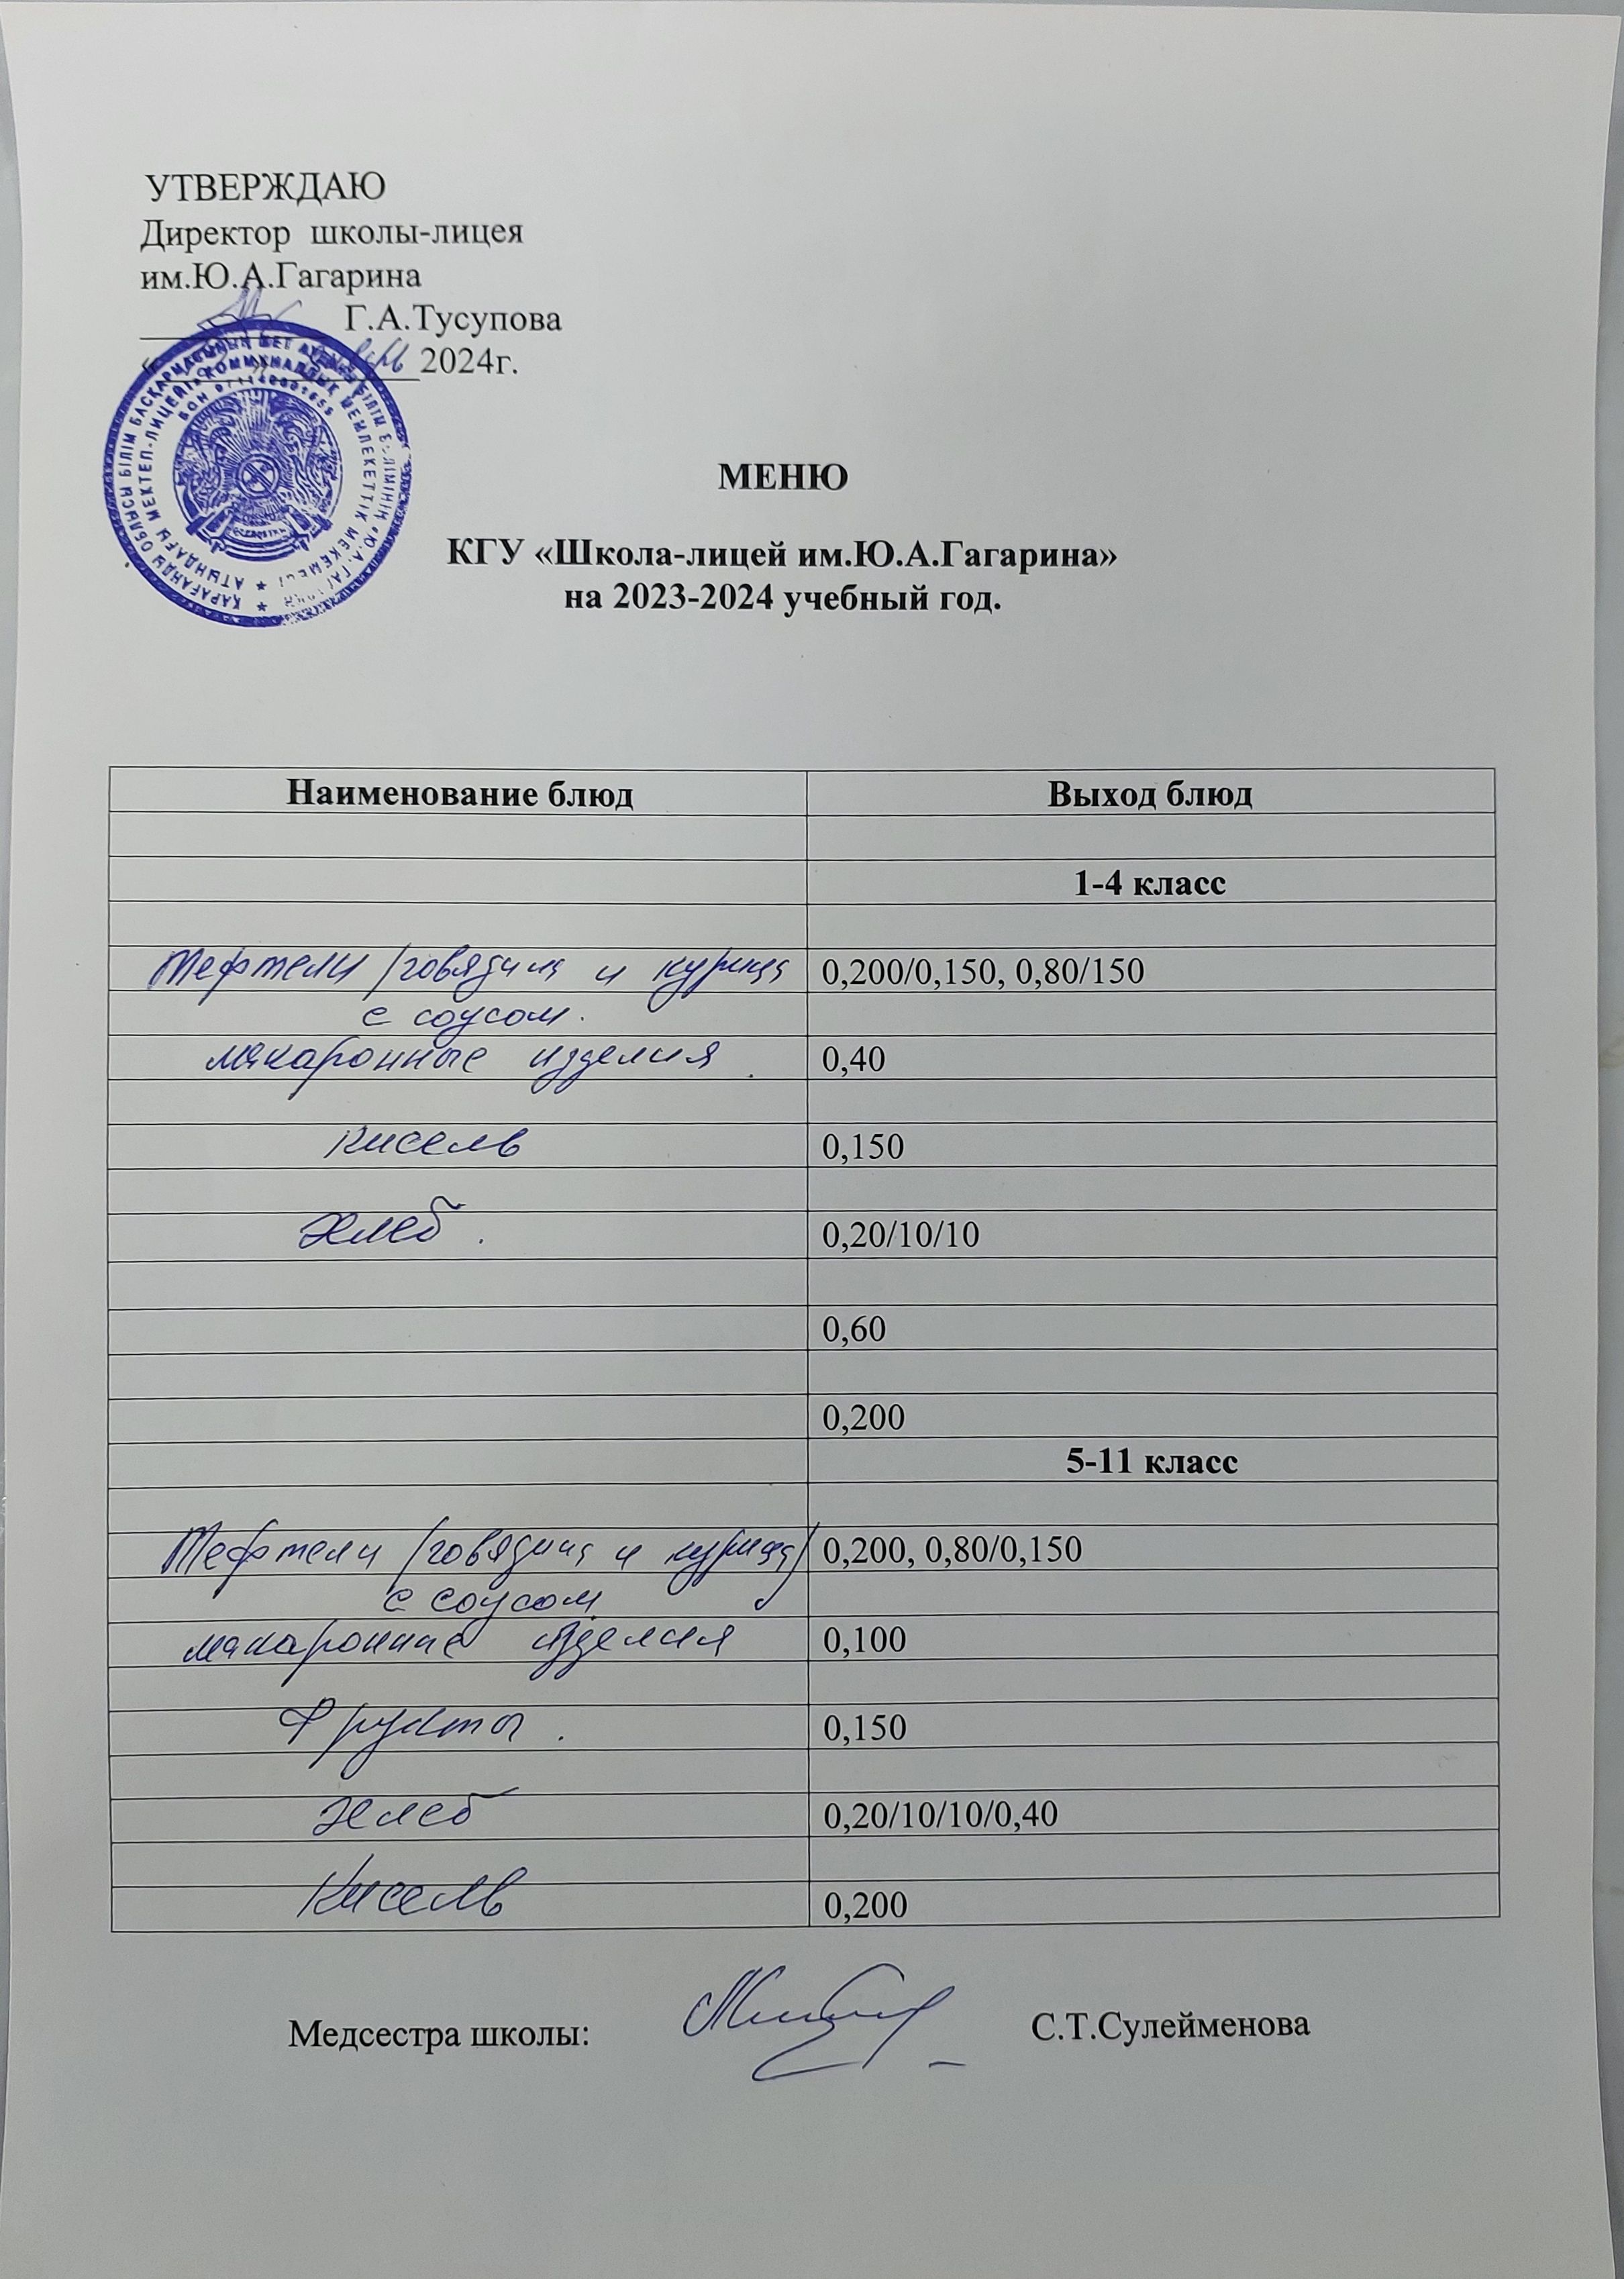 УТВЕРЖДАЮ
Директор школы-лицея
им.Ю.А.Гагарина
Г.А.Тусупова
2024г.
ҚАРАҒАНДЫ ОБЛЫСЫ БІЛІМ БАСҚАРМАСЫНЫҢ ШЕТ АУДАНЫ БІЛІМ БӨЛІМІНІҢ «Ю.А. ГАГАРИН
АТЫНДАҒЫ МЕКТЕП-ЛИЦЕЙІ» КОММУНАЛДЫҚ МЕМЛЕКЕТТІК МЕКЕМЕСІ
БСН
МЕНЮ
КГУ «Школа-лицей им.Ю.А.Гагарина»
на 2023-2024 учебный год.
Наименование блюд Выход блюд
1-4 класс
Тефтели /говядина и курица 0,200/0,150, 0,80/150
с соусом.
макаронные изделия 0,40
Кисель 0,150
Хлеб. 0,20/10/10
0,60
0,200
5-11 класс
Тефтели /говядина и курица/ 0,200, 0,80/0,150
с соусом
макаронные изделия 0,100
Фрукты. 0,150
Хлеб 0,20/10/10/0,40
Кисель 0,200
Медсестра школы: С.Т.Сулейменова